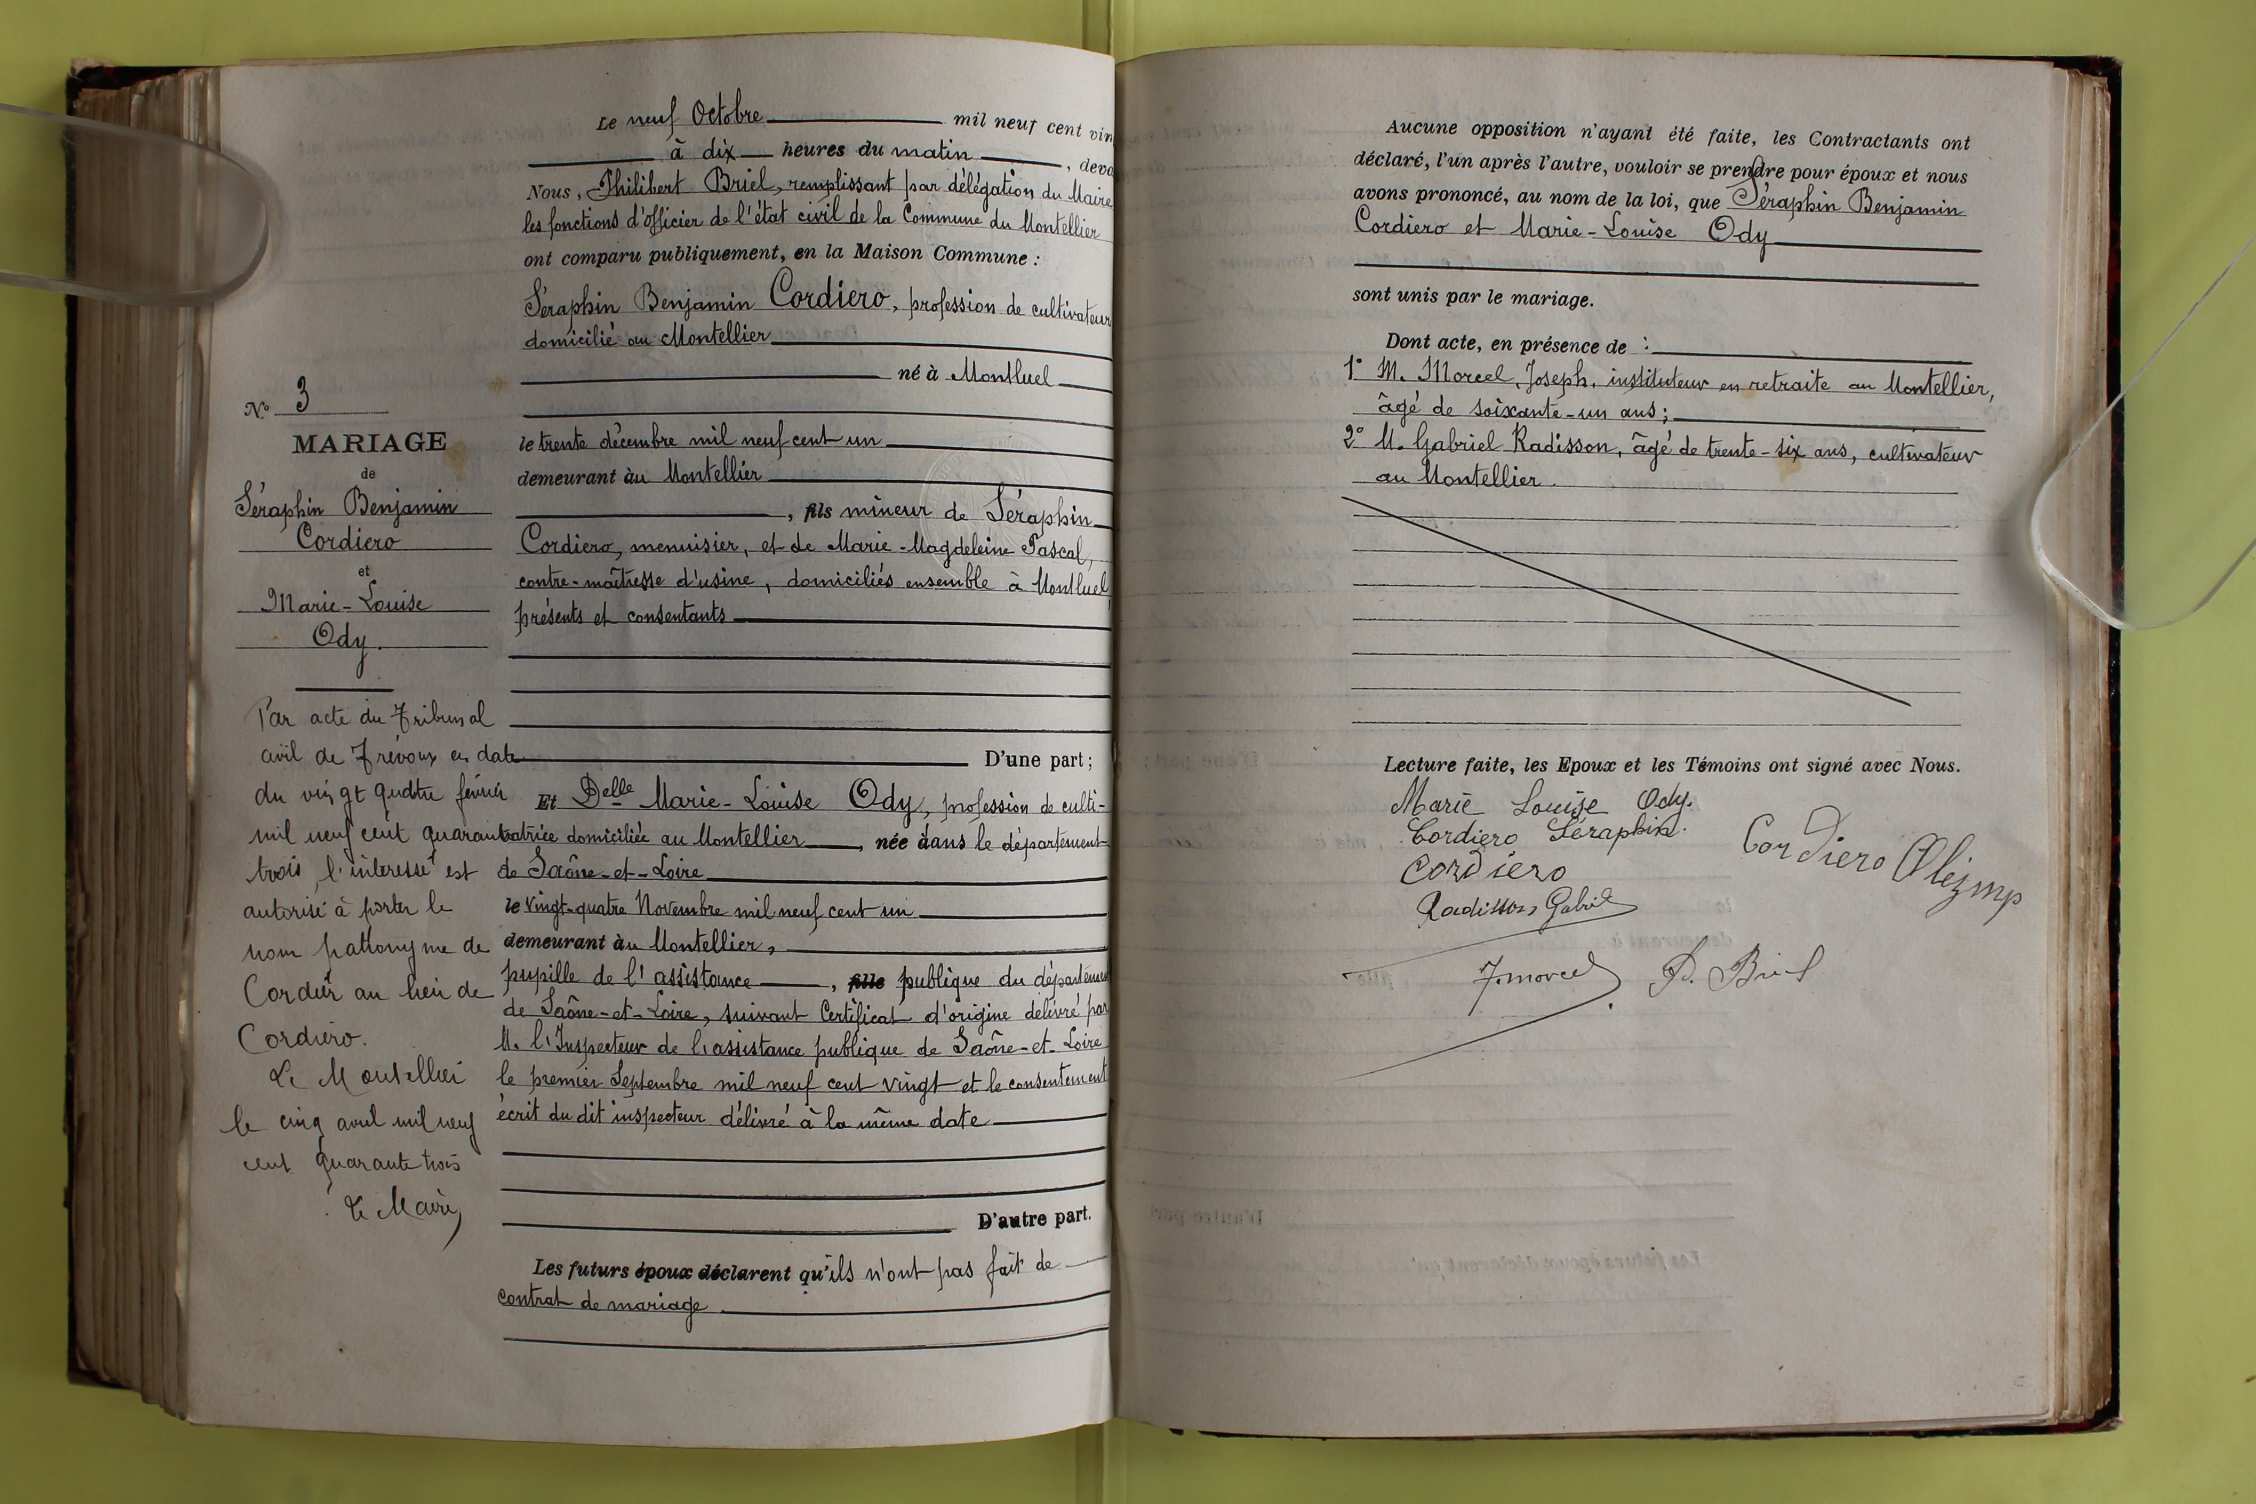 Le neuf Octobre mil neuf cent vin
à dix heures du matin, deva
Nous, Philibert Briel, remplissant par délégation du Maire
les fonctions d'officier de l'état civil de la Commune du Montellier
ont comparu publiquement, en la Maison Commune :
Séraphin Benjamin Cordiero, profession de cultivateur
domicilié au Montellier
né à Montluel
le trente décembre mil neuf cent un
demeurant àu Montellier
, fils mineur de Séraphin
Cordiero, menuisier, et de Marie-Magdeleine Pascal,
contre-maîtresse d'usine, domiciliés ensemble à Montluel,
présents et consentants
D'une part ;
Et Delle Marie-Louise Ody, profession de culti-
vatrice domiciliée au Montellier, née dans le département
de Saône-et-Loire
le vingt-quatre Novembre mil neuf cent un
demeurant àu Montellier,
pupille de l'assistance, fille publique du départemen
de Saône-et-Loire, suivant Certificat d'origine délivré par
M. l'Inspecteur de l'assistance publique de Saône-et-Loire
le premier Septembre mil neuf cent vingt et le consentement
écrit du dit inspecteur délivré à la même date
D'autre part.
Les futurs époux déclarent qu'ils n'ont pas fait de
contrat de mariage
N° 3
MARIAGE
de
Séraphin Benjamin
Cordiero
et
Marie-Louise
Ody.
Par acte du Tribunal
civil de Trévoux en date
du vingt quatre février
mil neuf cent quarante
trois, l'interessé est
autorisé à porter le
nom patronyme de
Cordier au lieu de
Cordiero.
Le Montellier
le cinq avril mil neuf
cent quarante trois
Le Maire,
Aucune opposition n'ayant été faite, les Contractants ont
déclaré, l'un après l'autre, vouloir se prendre pour époux et nous
avons prononcé, au nom de la loi, que Séraphin Benjamin
Cordiero et Marie-Louise Ody
sont unis par le mariage.
Dont acte, en présence de :
1° M. Morcel, Joseph, instituteur en retraite au Montellier,
âgé de soixante-un ans ;
2° M. Gabriel Radisson, âgé de trente-six ans, cultivateur
au Montellier.
Lecture faite, les Epoux et les Témoins ont signé avec Nous.
Marie Louise Ody.
Cordiero Séraphin.
Cordiero
Cordiero Olezmp
Radisson Gabriel
J. Morcel
P. Briel